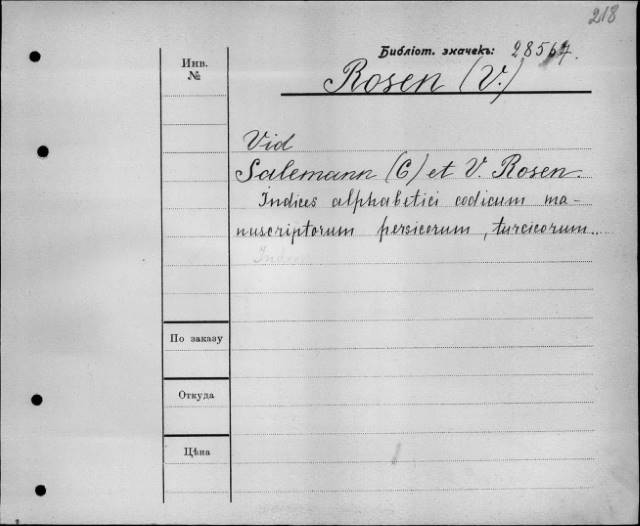 218
Библіот. значекъ: 28567.
Инв.
№
Rosen (V.)
Vid
Salemann (C) et V. Rosen.
Indices alphabetici codicum ma-
nuscriptorum persicorum, turcicorum..
По заказу
Откуда
Цѣна